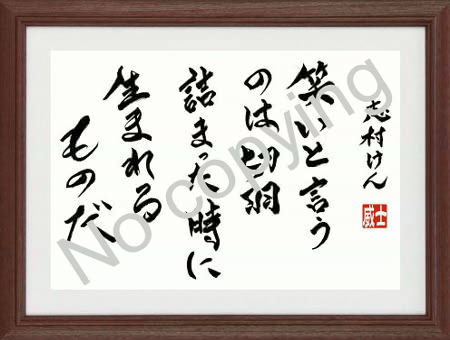 志村けん
笑いと言う
のは切羽
詰まった時に
生まれる
ものだ
威士
No copying